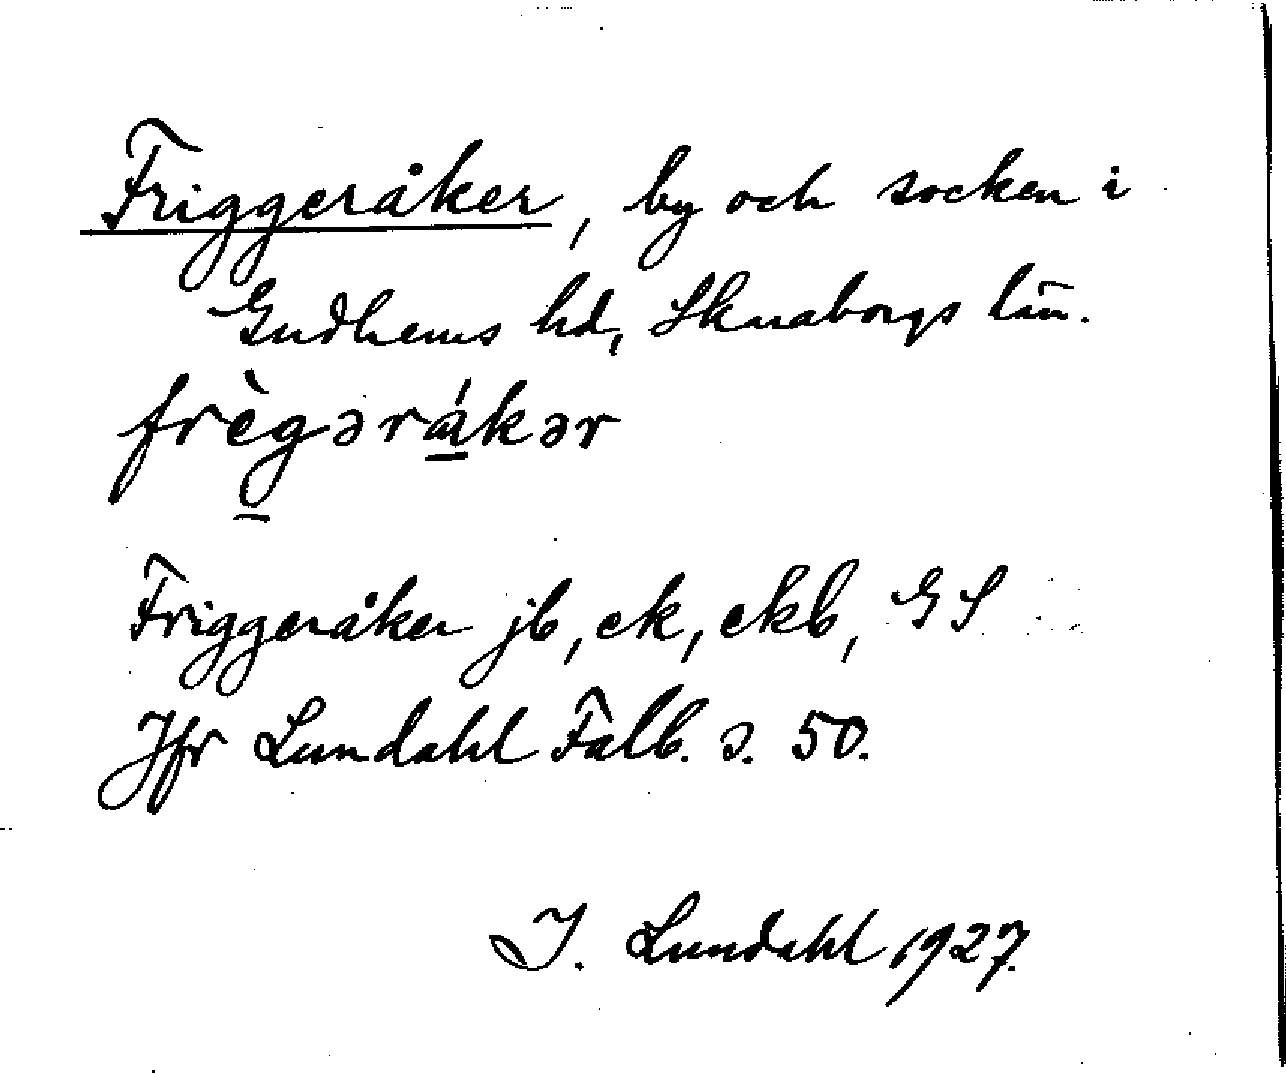 Friggeråker, by och socken i
Gudhems hd, Skaraborgs län.
frègərákər
Friggeråker jb, ek, ekb, GS
Jfr Lundahl Falb. s. 50.
I. Lundahl 1927.